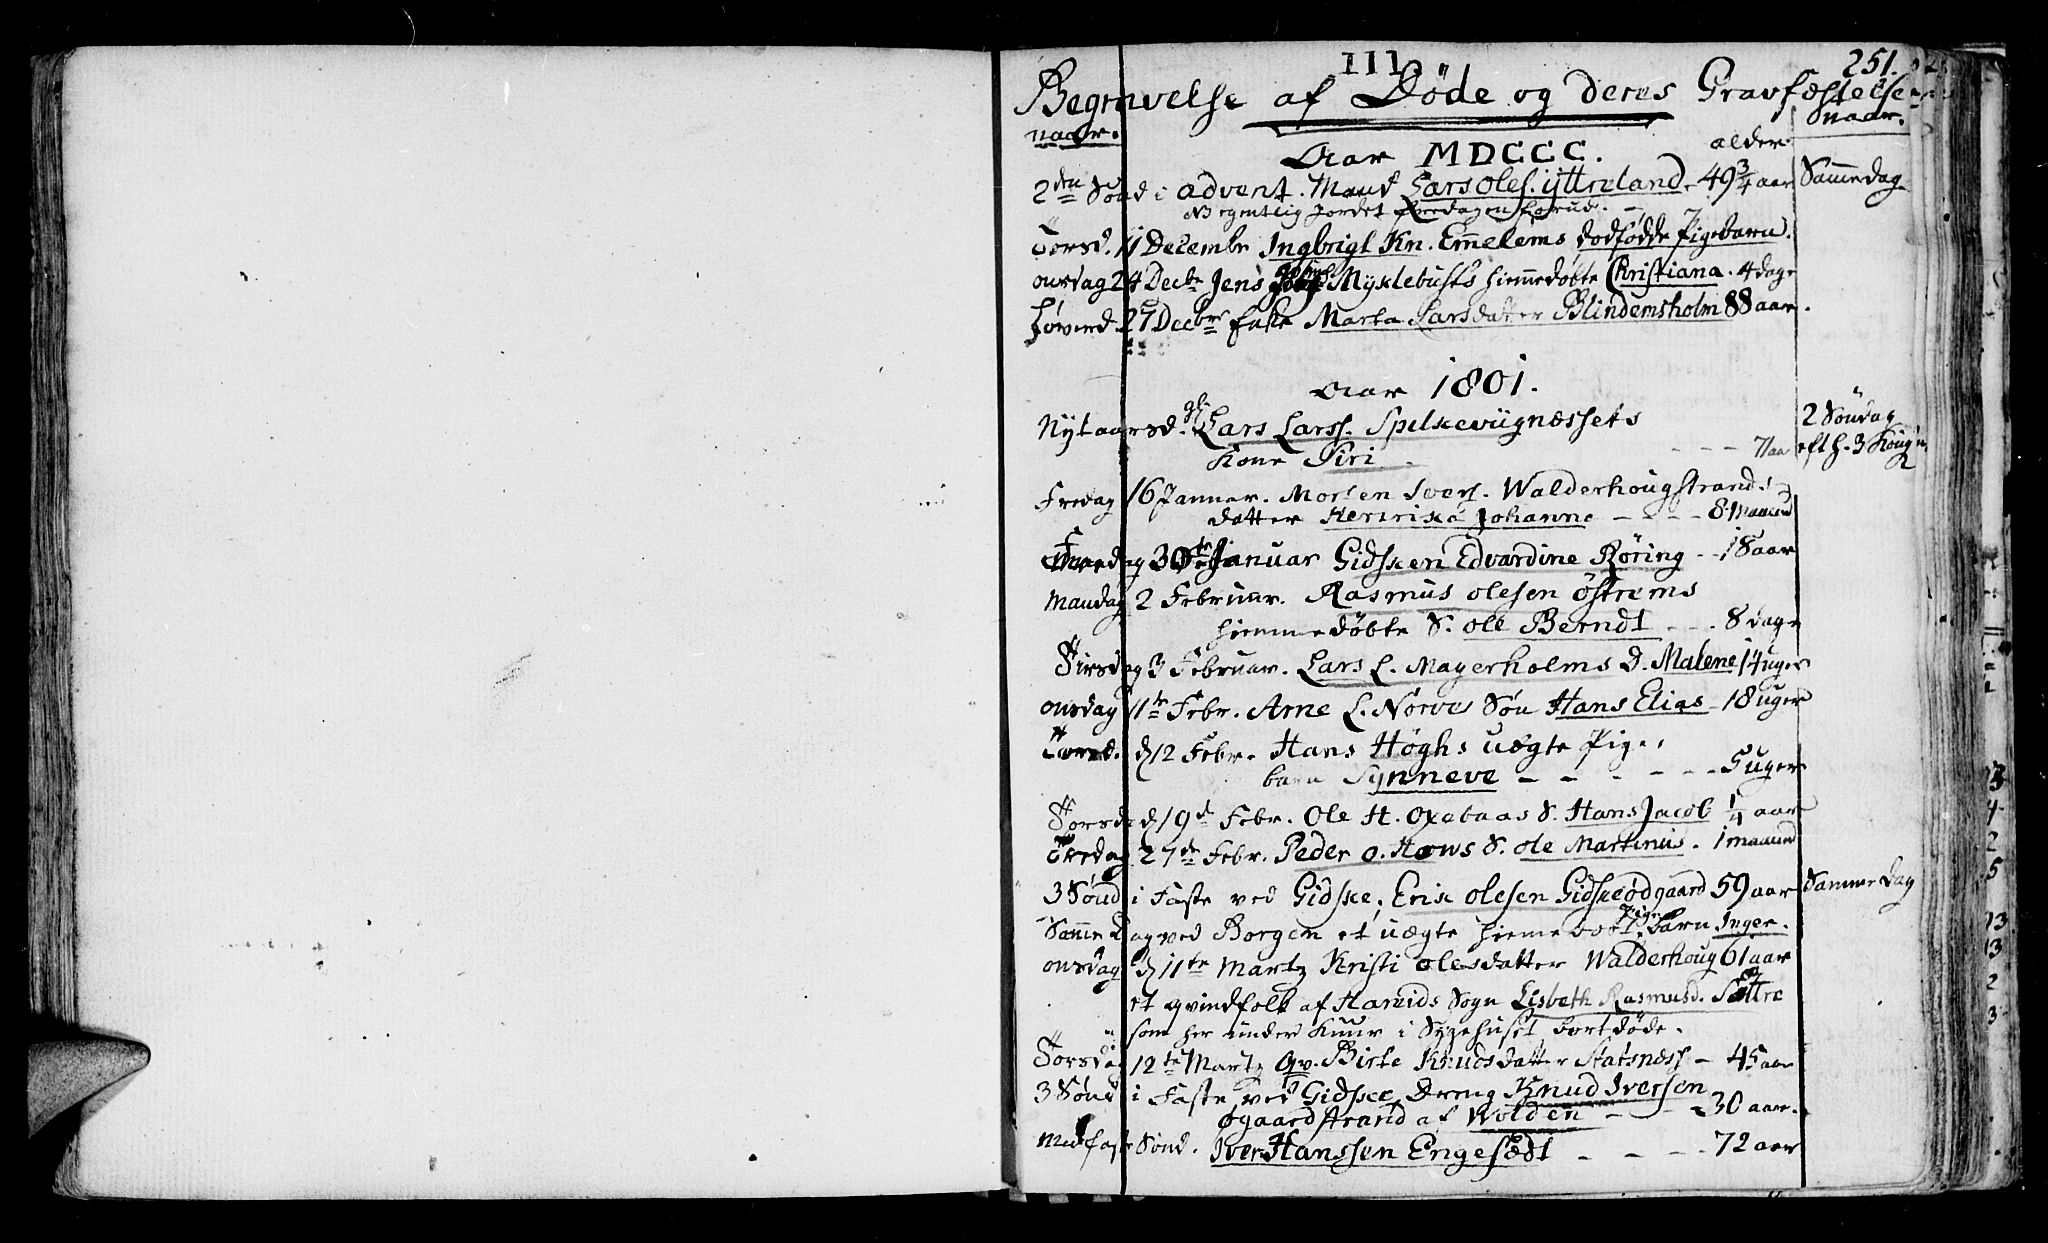 III.
251.
Begravelse af Døde og deres Gravfæstelse
naar.
Snaar.
Aar MDCCC.
alder
2den Sönd i advent. Mand Lars Oles. ijttreland 49 3/4 aar Sammedag
NB egentlig jordet fredagen forud.
Torsd. 11 Decembr Ingbrigt Kn. Emmelems dodfødde Pigebarn.
onsdag 24 Decbr Jens Myklebusts hiemmedøbte Christiana. 4 dage
Løverd. 27 Decbr Enke Marta Larsdatter Blindemsholm 88 aar.
Aar 1801.
Nytaarsd. gl. Lars Larss. Spilkeviignæssets 2 Söndag
Kone Siri - - - 71 aa eft h. 3 Kong
Fredag 16 Januar. Morten Ivers. Walderhougstrand.
datter Hendrika Johanne - - - - 8. Maaned
Fredag 30te Januar Gidsken Edvardine Røring - - 18 aar
Mandag 2 Februar. Rasmus olesen östrems
hiemmedøbte S. ole Berndt - - - 8 dage
Tirsdag 3 Februar. Lars L. Magerholms D. Malene 14 uger
onsdag 11te Febr. Arne L. Nørves Søn Hans Elias - 18 uger
Torsd. d 12 Febr. Hans Høghs uægte Pige
barn Synneve - - - - - - 5 uger
Torsda d 19d Febr. Ole H. Oxabaas S. Hans Jacob 1/4 aar
Fredag 27de Febr. Peder O. Hows S. ole Martinus. 1 maaned
3 Sönd i Faste ved Gidske, Erik olesen Gidskeødgaard 59 aar Samme Dag
Samme Dag ved Borgen et uægte hiemedöbt Pige barn Inger.
onsdag d 11te Martz Kristi olesdatter Walderhoug 61 aar
et qvindfolk af Hareids Sogn Lisbeth Rasmusd. Sættre
som her under Kuur i Sygehuset bortdøde.
Torsdag 12te Martz Qv. Birte Knudsdatter Statsnæss - 45 aar
3 Sönd i Faste ved Gidske, Dreng Knud Iversen
øgaardstrand af Wolden - - - 30 aar.
Midfaste Sönd. Iver Hanssen Engesædt - - - - 72 aar